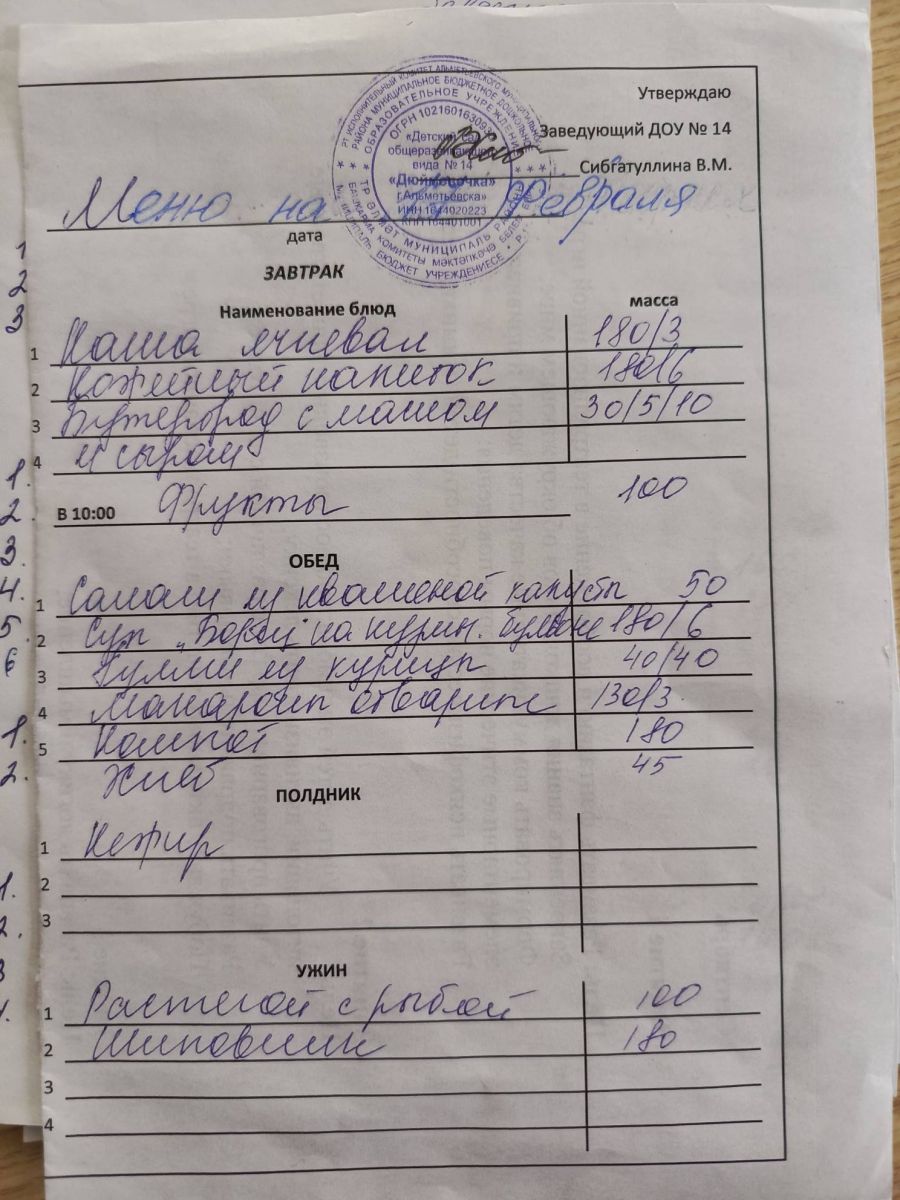 Утверждаю
Заведующий ДОУ № 14
Сибгатуллина В.М.
РТ ИСПОЛНИТЕЛЬНЫЙ КОМИТЕТ АЛЬМЕТЬЕВСКОГО МУНИЦИПАЛЬНОГО
РАЙОНА МУНИЦИПАЛЬНОЕ БЮДЖЕТНОЕ ДОШКОЛЬНОЕ
ОБРАЗОВАТЕЛЬНОЕ УЧРЕЖДЕНИЕ
ОГРН 102160163093
«Детский сад
общеразвивающего
вида № 14
«Дюймовочка»
г.Альметьевска»
ИНН 1644020223
КПП 164401001
Меню на февраля
дата
ЗАВТРАК
Наименование блюд масса
1 Каша ячневая 180/3
2 Кофейный напиток 180/6
3 Бутерброд с маслом 30/5/10
4 и сыром
В 10:00 Фрукты 100
ОБЕД
1 Салат из квашеной капусты 50
2 Суп "Борщ" на курин. бульоне 180/6
3 Гуляш из курицы 40/40
4 Макароны отварные 130/3
5 Компот 180
Хлеб 45
ПОЛДНИК
1 Кефир
2
3
УЖИН
1 Растегай с рыбой 100
2 Шиповник 180
3
4